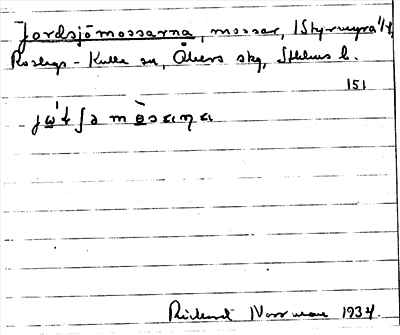 Jordsjömossarna, mossar, 1 Styrmyra 1/4,
Roslags-Kulla sn, Åkers skg, Sthlms l.
151
Rickard Norrman 1934.